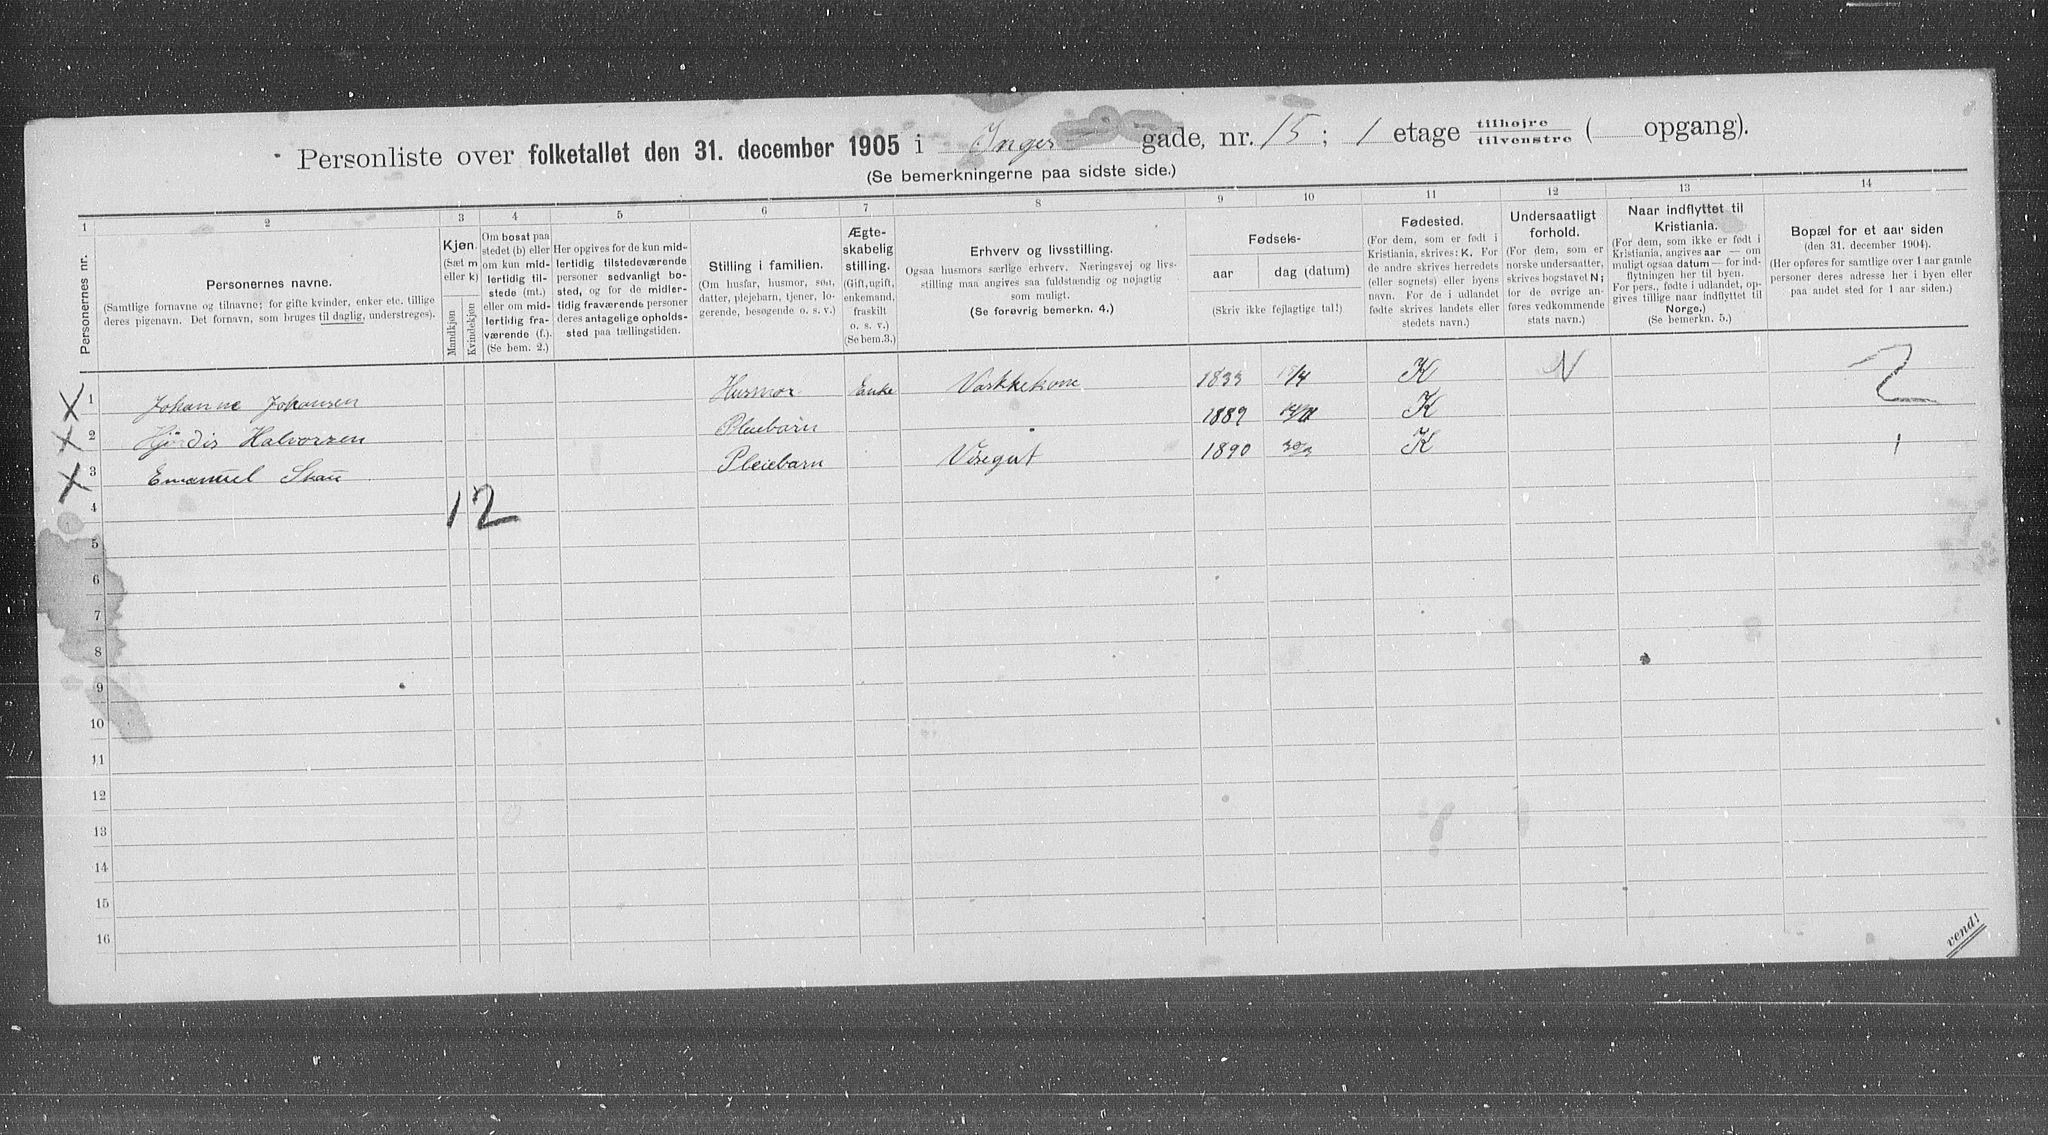 Personliste over folketallet den 31. december 1905 i Inges gade, nr. 15; 1 etage tilhøjre tilvenstre ( opgang).
(Se bemerkningerne paa sidste side.)
1 2 3 4 5 6 7 8 9 10 11 12 13 14
Personernes nr.
Personernes navne.
(Samtlige fornavne og tilnavne; for gifte kvinder, enker etc. tillige
deres pigenavn. Det fornavn, som bruges til daglig, understreges).
Kjøn.
(Sæt m
eller k)
Mandkjøn
Kvindekjøn
Om bosat paa
stedet (b) eller
om kun mid-
lertidig til-
stede (mt.)
eller om mid-
lertidig fra-
værende (f.).
(Se bem. 2.)
Her opgives for de kun mid-
lertidig tilstedeværende
personer sedvanligt bo-
sted, og for de midler-
tidig fraværende personer
deres antagelige opholds-
sted paa tællingstiden.
Stilling i familien.
(Om husfar, husmor, søn,
datter, plejebarn, tjener, lo-
gerende, besøgende o. s. v.)
Ægte-
skabelig
stilling.
(Gift, ugift,
enkemand,
fraskilt
o. s. v.)
(Se bem.3.)
Erhverv og livsstilling.
Ogsaa husmors særlige erhverv. Næringsvej og livs-
stilling maa angives saa fuldstændig og nøjagtig
som muligt.
(Se forøvrig bemerkn. 4.)
Fødsels-
aar
dag (datum)
(Skriv ikke fejlagtige tal!)
Fødested.
(For dem, som er født i
Kristiania, skrives: K. For
de andre skrives herredets
(eller sognets) eller byens
navn. For de i udlandet
fødte skrives landets eller
stedets navn.)
Undersaatligt
forhold.
(For dem, som er
norske undersaatter,
skrives bogstavet N;
for de øvrige an-
føres vedkommende
stats navn.)
Naar indflyttet til
Kristiania.
(For dem, som ikke er født i
Kristiania, angives aar
muligt ogsaa datum — for ind-
flytningen her til byen.
For pers., fødte i udlandet, op-
gives tillige naar indflyttet til
Norge.)
(Se bemerkn. 5.)
Bopæl for et aar siden
(den 31. december 1904).
(Her opføres for samtlige over 1 aar gamle
personer deres adresse her i byen eller
paa andet sted for 1 aar siden.)
X 1 Johanne Johansen Husmor Enke Vaskekone 1833 K N 2
X 2 Hjørdis Halvorsen Pleiebarn 1889 K
X 3 Emanuel Skau Pleiebarn Visegut 1890 K 1
4 1 2
5
6
7
8
9
10
11
12
13
14
15
16
vend!